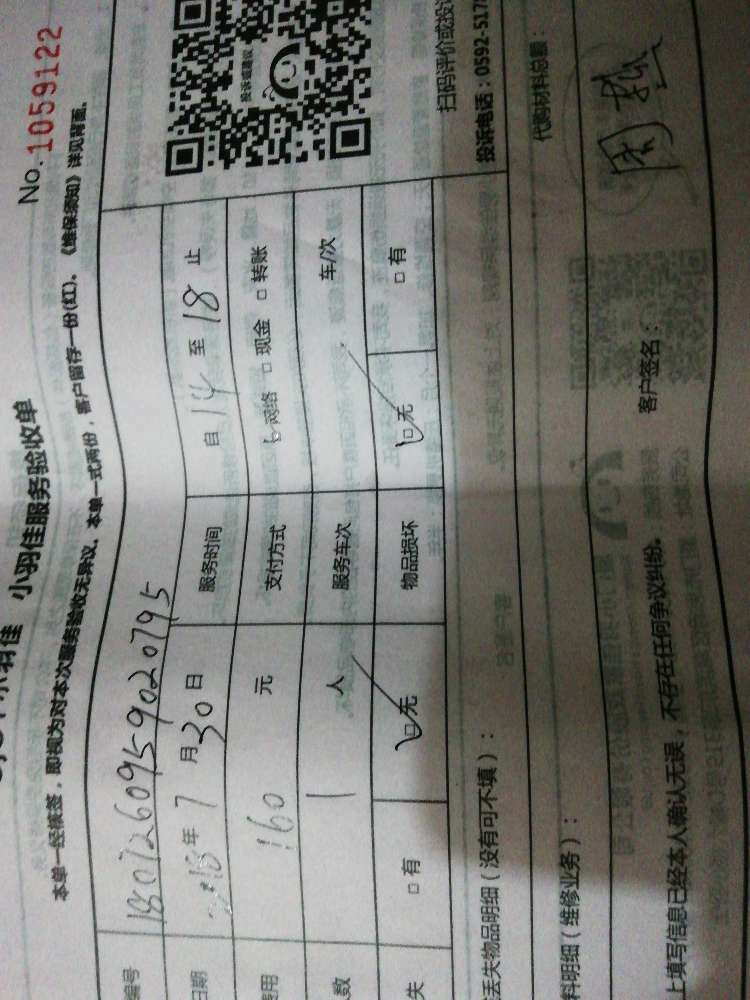 小羽佳服务验收单
No.1059122
本单一经核签，即视为对本次服务验收无异议。本单一式两份，客户留存一份(红)。《维保须知》详见背面。
编号 180726095902079​5
日期 2018年7月30日 服务时间 自14至18止
费用 160 元 支付方式 □网络 □现金 □转账
数 1 人 服务车次 车/次
失 □有 □无 物品损坏 □无 □有
投诉或建议
扫码评价或投诉
投诉电话：0592-517
丢失物品明细（没有可不填）：
料明细（维修业务）： 代购材料总额：
上填写信息已经本人确认无误，不存在任何争议纠纷。 客户签名：